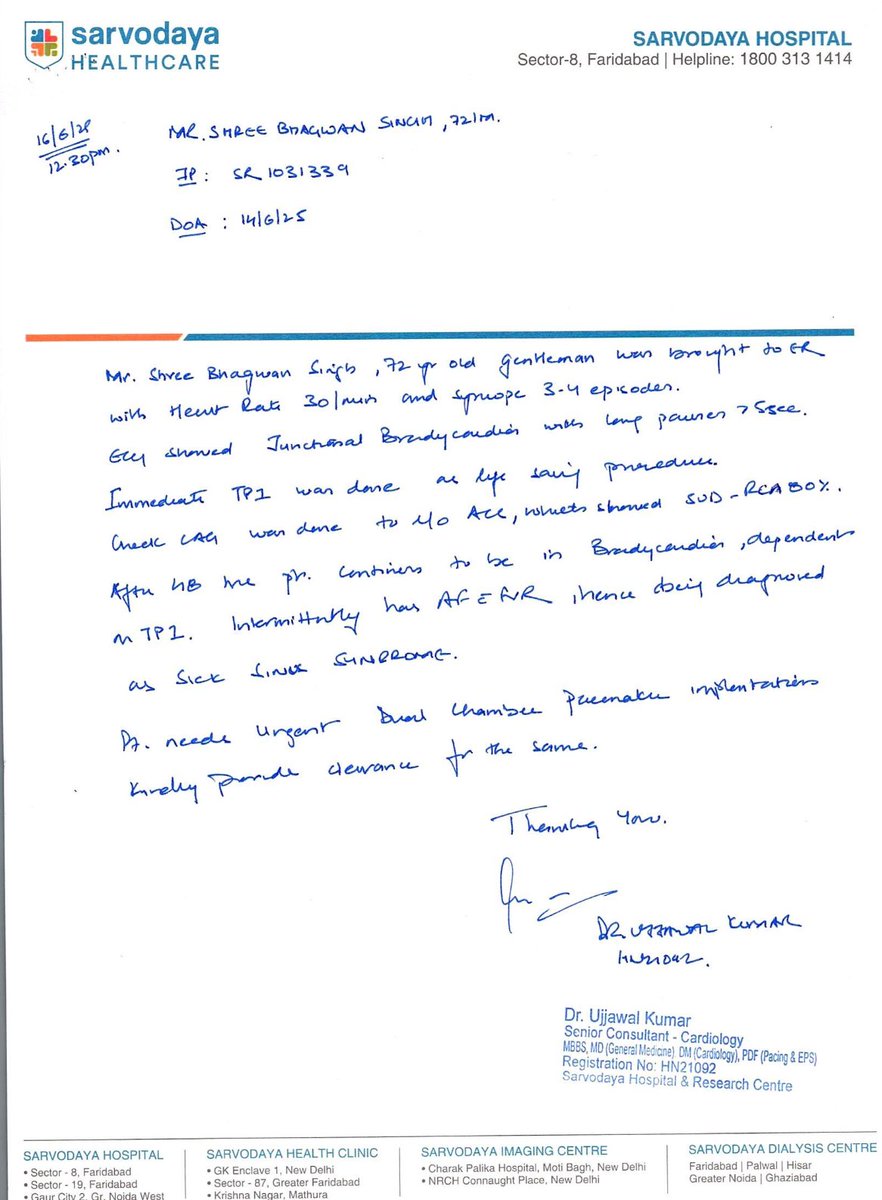 sarvodaya
HEALTHCARE
SARVODAYA HOSPITAL
Sector-8, Faridabad | Helpline: 1800 313 1414
16/6/25
12.30pm.
MR. SHREE BHAGWAN SINGH, 72/M.
IP : SR 1031339
DOA : 14/6/25
Mr. Shree Bhagwan Singh, 72 yr old gentleman was brought to ER
with Heart Rate 30/min and syncope 3-4 episodes.
ECG showed Junctional Bradycardia with long pauses >5sec.
Immediate TPI was done as life saving procedure.
Check CAG was done to r/o ACS, which showed SVD-RCA 80%.
After 48 hrs pt. continues to be in Bradycardia, dependent
on TPI. Intermittently has AF FVR, hence being diagnosed
as SICK SINUS SYNDROME.
Pt. needs urgent Dual Chamber Pacemaker implantation
Kindly provide clearance for the same.
Thanking You.
DR. UJJAWAL KUMAR
HN21092.
Dr. Ujjawal Kumar
Senior Consultant - Cardiology
MBBS, MD (General Medicine) DM (Cardiology), PDF (Pacing & EPS)
Registration No: HN21092
Sarvodaya Hospital & Research Centre
SARVODAYA HOSPITAL
• Sector - 8, Faridabad
• Sector - 19, Faridabad
• Gaur City 2, Gr. Noida West
SARVODAYA HEALTH CLINIC
• GK Enclave 1, New Delhi
• Sector - 87, Greater Faridabad
• Krishna Nagar, Mathura
SARVODAYA IMAGING CENTRE
• Charak Palika Hospital, Moti Bagh, New Delhi
• NRCH Connaught Place, New Delhi
SARVODAYA DIALYSIS CENTRE
Faridabad | Palwal | Hisar
Greater Noida | Ghaziabad